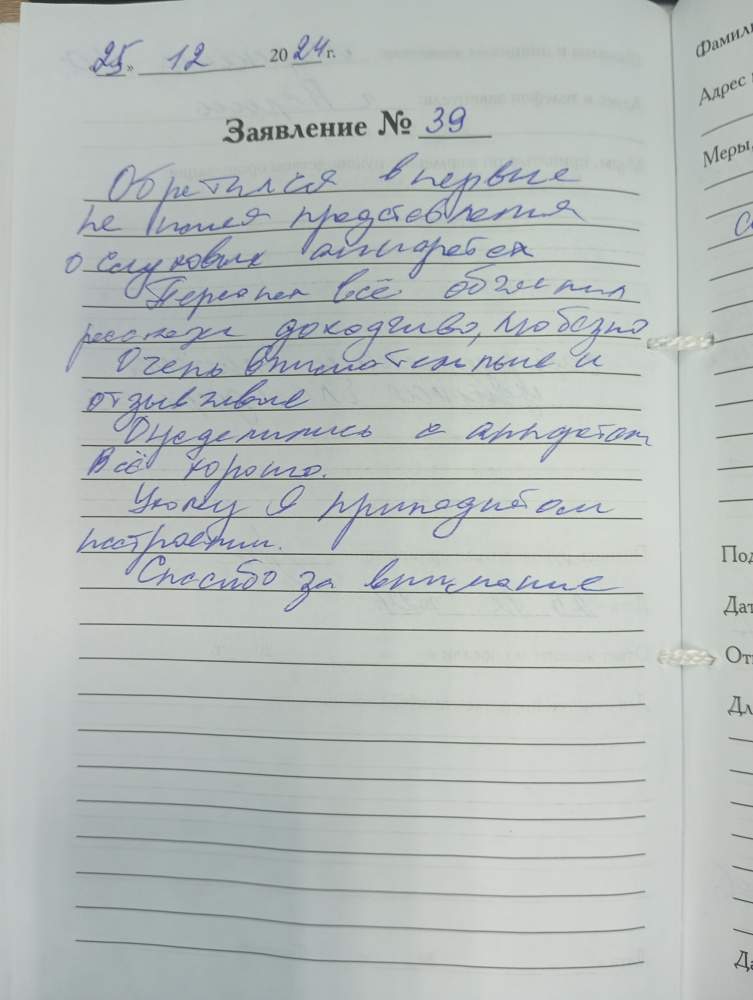 25 » 12 2024 г.
Заявление № 39
Обратился впервые
не имея представления
о слуховых аппаратах
Персонал всё объяснил
рассказал доходчиво, любезно
Очень внимательные и
отзывчивые
Определились с аппаратом
Всё хорошо.
Ухожу в приподнятом
настроении.
Спасибо за внимание
Адрес
Меры,